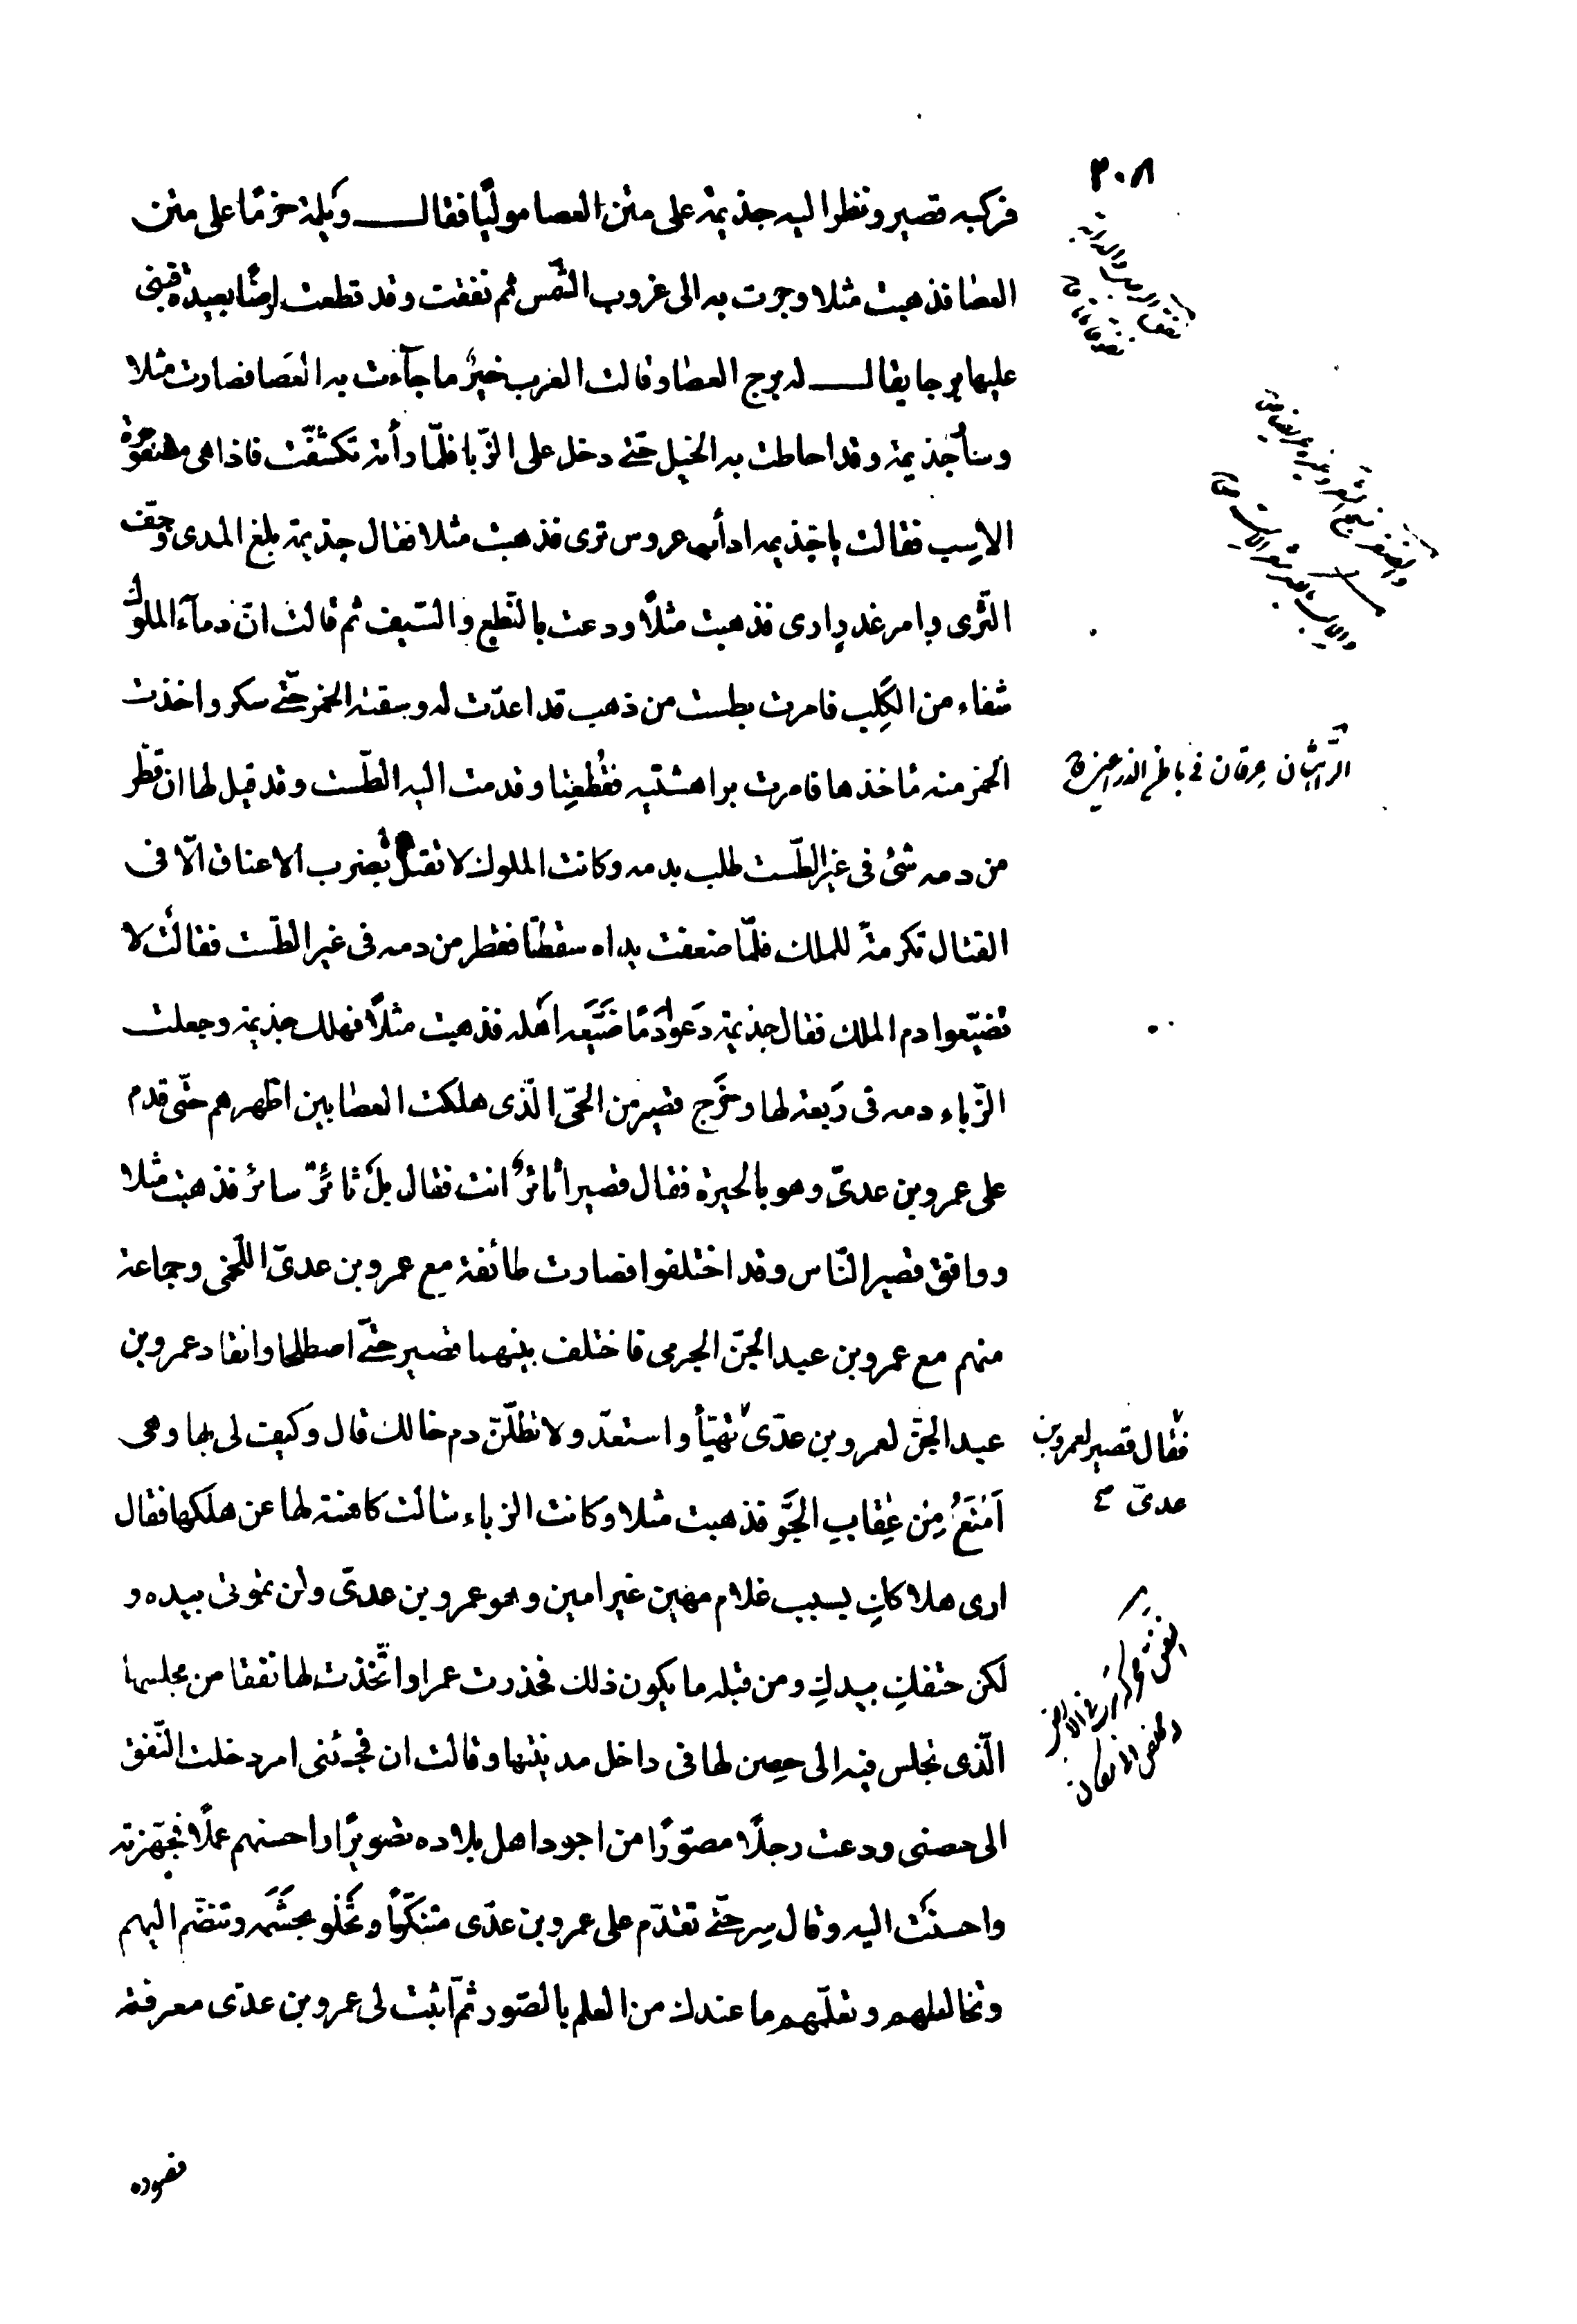 ٣٠٨
فركبه قصير ونظر اليه جذيمة على متن العصا موليًا فقال ويلمه حزمًا على متن
العصا فذهبت مثلا وجرت به الى غروب الشمس ثم نفقت وقد قطعت ارضًا بعيدة فبنى
عليها برجا يقال له برج العصا وقالت العرب خيرٌ ما جآءت به العَصا فصارت مثلا
وسار جذيمة وقد احاطت به الخيل حتّى دخل على الزّبا فلمّا رأته تكشّفت فاذا هى مضفورة
الاسب فقالت يا جذيمه ادأب عروس ترى فذهبت مثلا فقال جذيمة بلغ المدى وجفّ
الثّرى وامر غدر ارى فذهبت مثلاً ودعت بالنّطع والسّيف ثم قالت انّ دمآء الملوك
شفاء من الكَلِب فامرت بطست من ذهب قد اعدّت له وسقته الخمر حتّى سكر واخذت
الخمر منه مأخذها فامرت براهشتيه فقُطعِتا وقدمت اليه الطّست وقد قيل لها ان قطر
من دمه شئ فى غير الطّست طلب بدمه وكانت الملوك لا تقتل بضرب الاعناق الّا فى
القتال تكرمةً للملك فلمّا ضعفت يداه سقطتا فقطر من دمه فى غير الطّست فقالت لا
تضيّعوا دم الملك فقال جذيمة دَعوا دَمًا ضَيَّعَه اَهله فذهبت مثلاً فهلك جذيمة وجعلت
الزّباء دمه فى رَبعة لها وخَرَج قصير من الحىّ الّذى هلكت العصا بين اظهرهم حتّى قدم
على عمرو بن عدىّ وهو بالحيرة فقال قصير اثائرٌ انت فقال بل ثائرٌ سائر فذهبت مثلا
ووافق قصير النّاس وقد اختلفوا فصارت طائفة مع عمرو بن عدىّ اللّخمى وجماعة
منهم مع عمرو بن عبد الجنّ الجرمى فاختلف بينهما قصير حتّى اصطلحا وانقاد عمرو بن
عبد الجنّ لعمرو بن عدّى تهيّأ واستعدّ ولا تطلّنّ دم خالك قال وكيف لى بها وهى
فقال قصير لعمرو بن
عدىّ صح
اَمنَعُ مِن عُقابِ الجَّو فذهبت مثلا وكانت الزباء سالت كاهنة لها عن هلكها فقال
ارى هلاككِ بسبب غلام مهين غير امين وهو عمرو بن عدىّ ولن تموتى بيده و
لكن حتفكِ بيدكِ ومن قبله ما يكون ذلك فحذرت عمرا واتّخذت لها نفقا من مجلسها
الّذى تجلس فيه الى حصن لها فى داخل مدينتها وقالت ان فجئنى امر دخلت النّفق
الى حصنى ودعت رجلًا مصوّرًا من اجود اهل بلاده تصويرًا واحسنهم عملًا فجهّزته
واحسنَت اليه وقال سِر حتّى تقدّم على عمرو بن عدّى متنكّرًا وتخلو بحَشَمَه وتنضّم اليهم
وتخالطهم وتعلّمهم ما عندك من العلم بالصّور ثمّ اثبت لى عمرو بن عدّى معرفة
الرّاهشان عرقان فى باطن الذراعين
فصوره